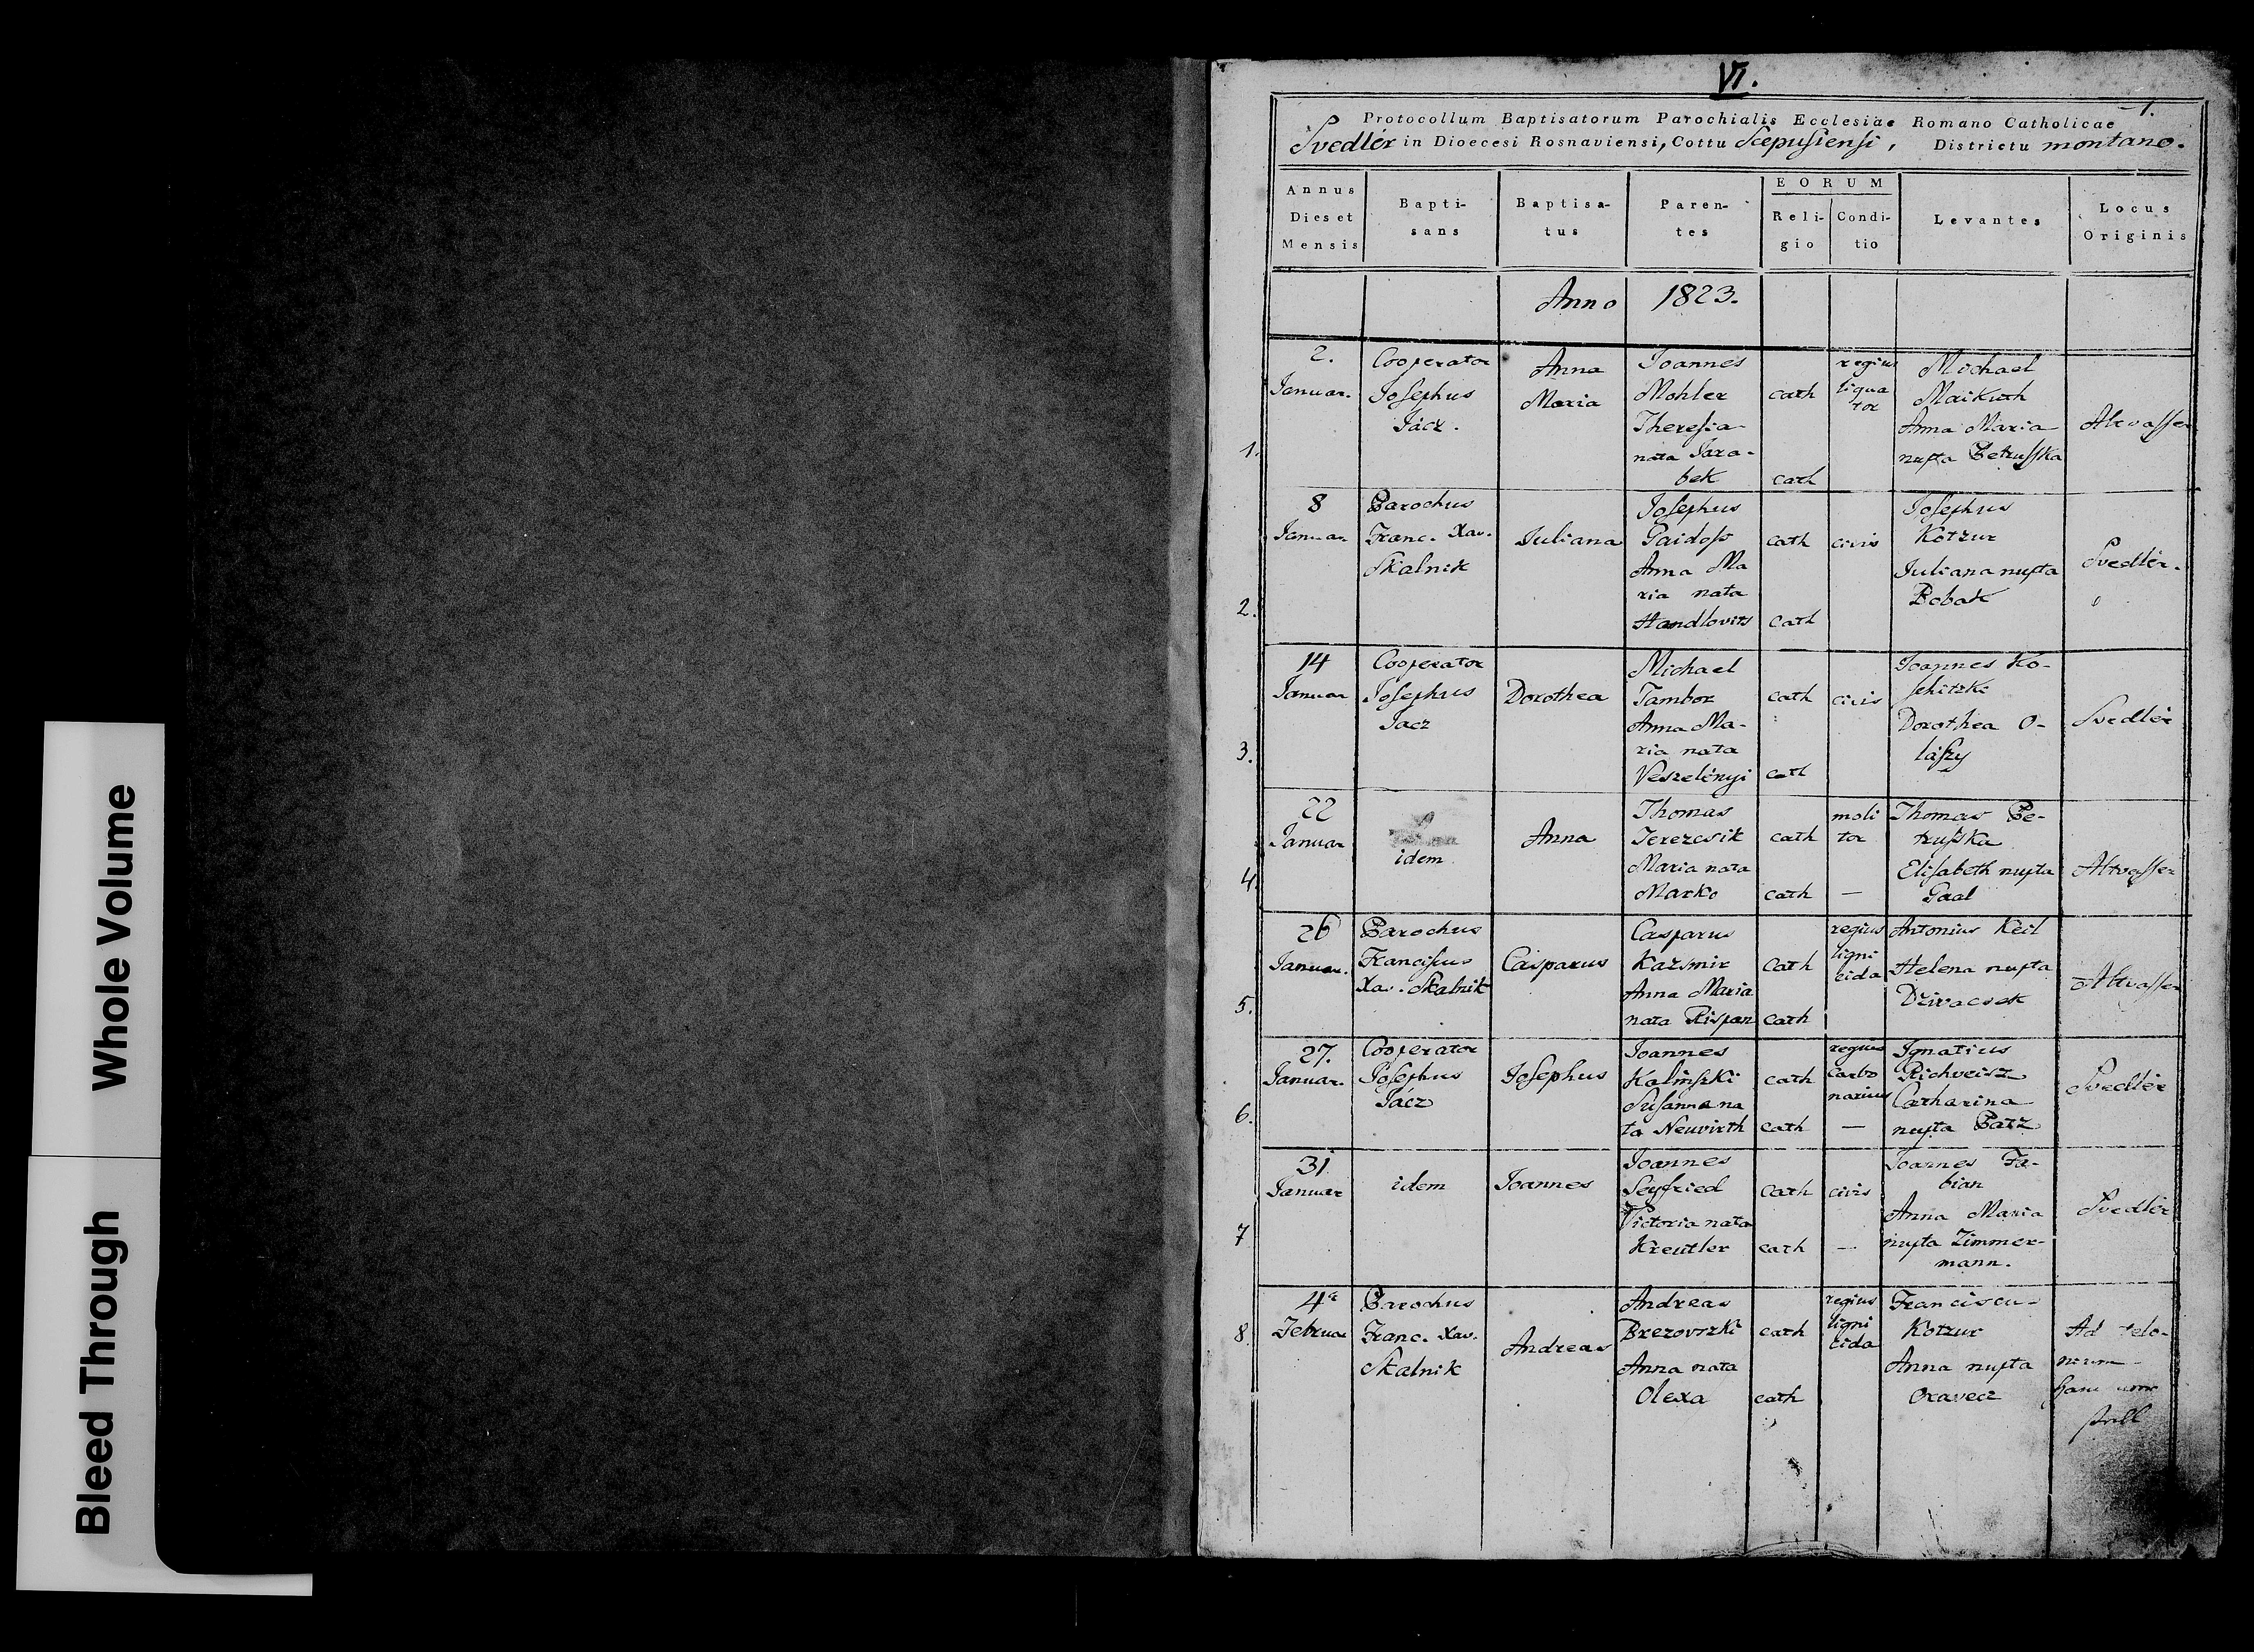 Bleed Through Whole Volume
VI.
1.
Protocollum Baptisatorum Parochialis Ecclesiae Romano Catholicae
Svedlér in Dioecesi Rosnaviensi, Cottu Scepusiensi, Districtu montano.
Annus Dies et Mensis
Baptisans
Baptisatus
Parentes
EORUM
Religio
Conditio
Levantes
Locus Originis
Anno 1823.
1.
2.
Januar.
Cooperator
Josephus
Jácz.
Anna
Maria
Joannes
Mohler
Theresia
nata Jara-
bek
cath
cath
regius
liqua
tor
Michael
Maikuth
Anna Maria
nupta Petrusska
Altvasser
2.
8
Januar
Parochus
Franc. Xav.
Skalnik
Juliana
Josephus
Gaidoss
Anna Ma
ria nata
Handlovits
cath
cath
civis
Josephus
Kotzur
Juliana nupta
Bobak
Svedlér.
3.
14
Januar
Cooperator
Josephus
Jacz
Dorothea
Michael
Tambor
Anna Ma-
ria nata
Veszelényi
cath
cath
civis
Joannes Ko-
schitzki
Dorothea O-
Svedlér
4.
22
Januar
idem
Anna
Thomas
Terezcsik
Maria nata
Marko
cath
cath
moli
tor
—
Thomas Pe-
trusska
Elisabeth nupta
Gaal
Altvasser
5.
26
Januar.
Parochus
Franciscus
Xav. Skalnik
Casparus
Casparus
Kazsmir
Anna Maria
nata Rispan
Cath
cath
regius
ligni
cida
Antonius Keil
Helena nupta
Dzivacsek
Altvasser
6.
27.
Januar.
Cooperator
Josephus
Jácz
Josephus
Joannes
Kalinszki
Susanna na
ta Neuvirth
cath
cath
regius
carbo
narius
—
Ignatius
Richveisz
Catharina
nupta Patz
Svedlér
7
31
Januar
idem
Joannes
Joannes
Seyfried
Victoria nata
Kreutler
cath
cath
civis
—
Joannes Fa-
bian
Anna Maria
nupta Zimmer-
mann.
Svedlér
8.
4a
Februar
Parochus
Franc. Xav.
Skalnik
Andreas
Andreas
Brezovszki
Anna nata
Olexa
cath
cath
regius
ligni
cida
Franciscu-
Kotzur
Anna nupta
Oravecz
Ad telo-
nium